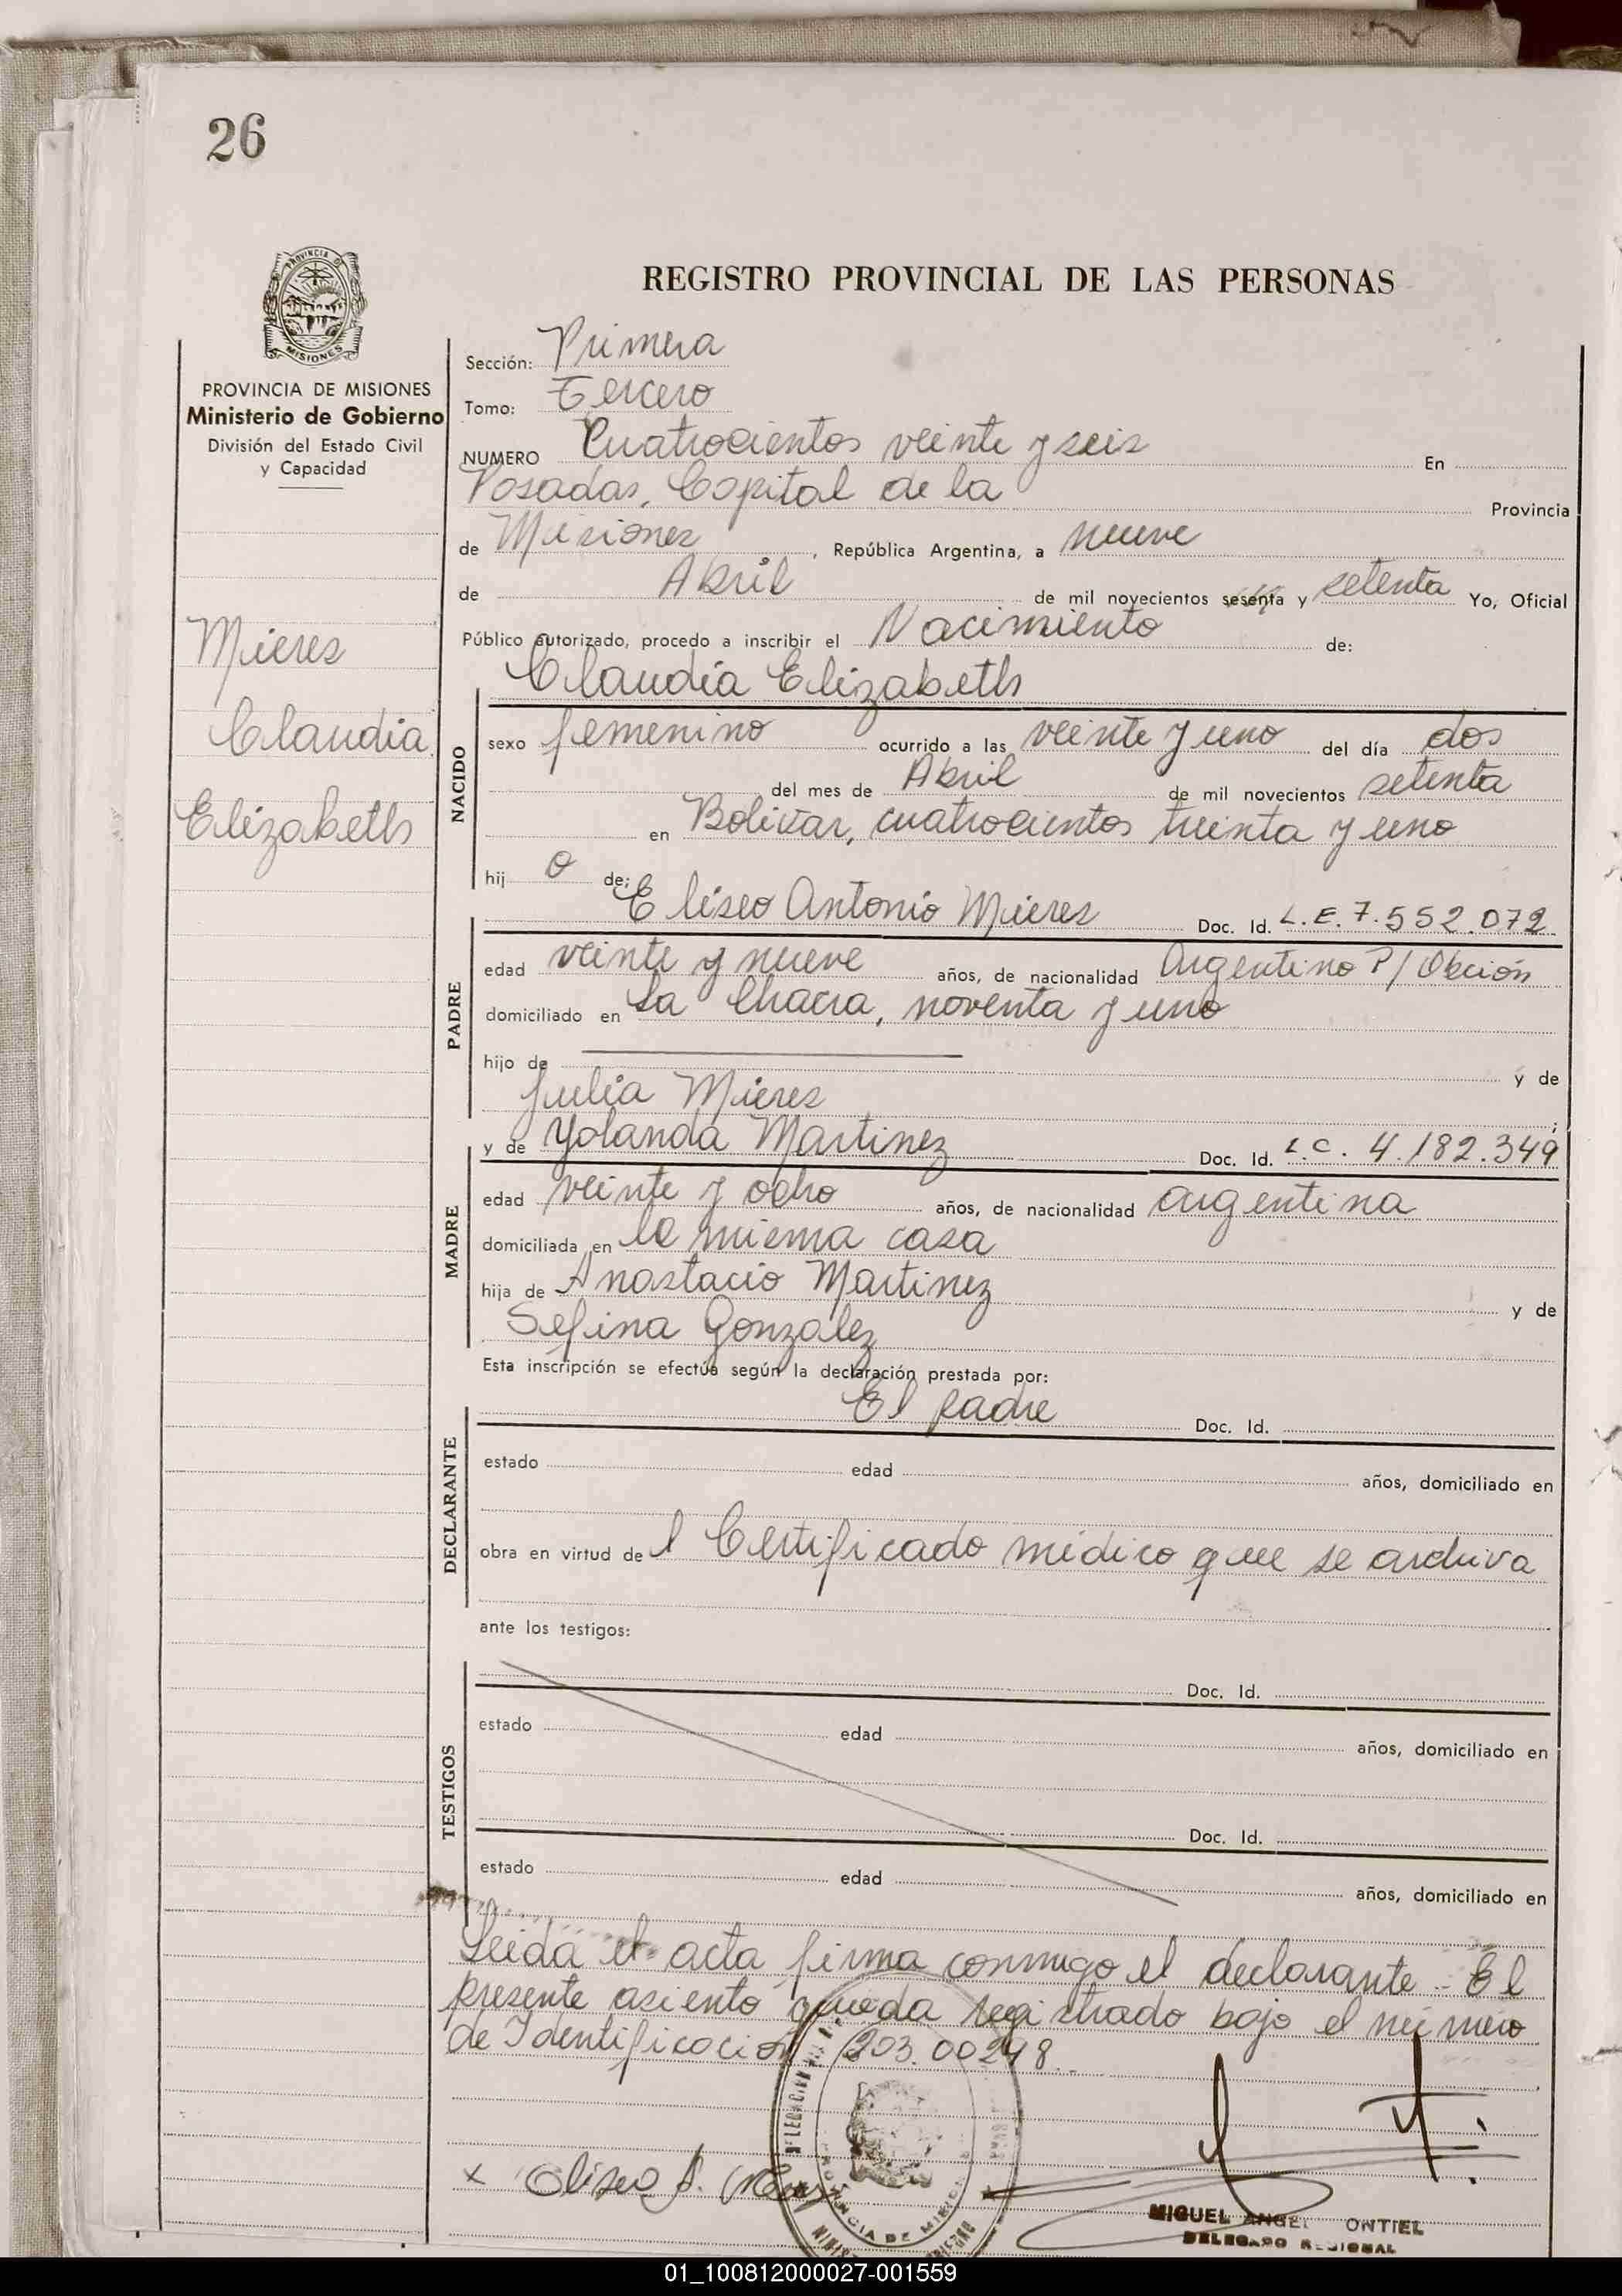 26
REGISTRO PROVINCIAL DE LAS PERSONAS
PROVINCIA DE MISIONES
Ministerio de Gobierno
División del Estado Civil
y Capacidad
Mieres
Claudia
Elizabeth
Sección: Primera
Tomo: Tercero
NUMERO Cuatrocientos veinte y seis En
Posadas, Capital de la Provincia
de Misiones, República Argentina, a nueve
de Abril de mil novecientos sesenta y setenta Yo, Oficial
Público autorizado, procedo a inscribir el Nacimiento de:
Claudia Elizabeth
NACIDO
sexo femenino ocurrido a las veinte y uno del día dos
del mes de Abril de mil novecientos setenta
en Bolivar, cuatrocientos treinta y uno
hij o de:
Eliseo Antonio Mieres Doc. Id. L.E. 7.552.072
PADRE
edad veinte y nueve años, de nacionalidad Argentino P/Obción
domiciliado en La Chacra, noventa y uno
hijo de y de
Julia Mieres
y de Yolanda Martinez Doc. Id. L.C. 4.182.349
MADRE
edad veinte y ocho años, de nacionalidad argentina
domiciliada en la misma casa
hija de Anastacio Martinez y de
Sefina Gonzalez
Esta inscripción se efectúa según la declaración prestada por:
El padre Doc. Id.
DECLARANTE
estado edad años, domiciliado en
obra en virtud de l Certificado médico que se archiva
ante los testigos:
TESTIGOS
Doc. Id.
estado edad años, domiciliado en
Doc. Id.
estado edad años, domiciliado en
Leida el acta firma conmigo el declarante - El
presente asiento queda registrado bajo el número
de Identificación 203.00248
x Eliseo A. Mieres
PROVINCIA DE MISIONES
MIGUEL ANGEL ONTIEL
DELEGADO REGIONAL
01_100812000027-001559